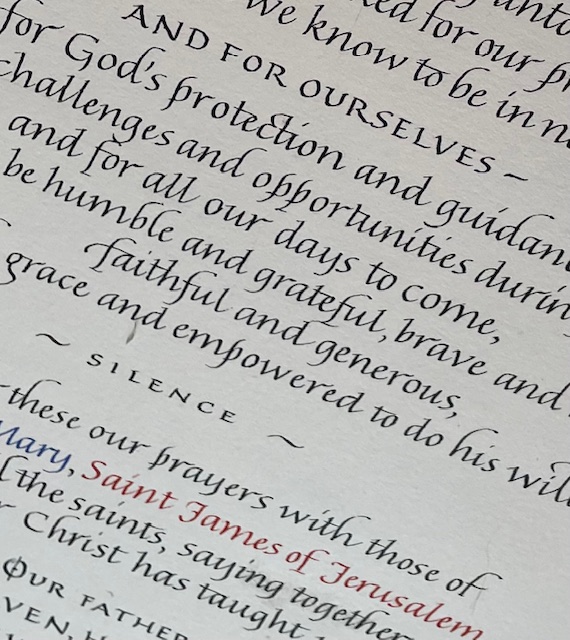 unto
for our
we know to be in
AND FOR OURSELVES ~
for God's protection and
challenges and opportunities
and for all our days to come,
be humble and grateful, brave and
faithful and generous,
grace and empowered to do his will
~ SILENCE ~
these our prayers with those of
Mary, Saint James of Jerusalem
the saints, saying together
Christ has taught
OUR FATHER